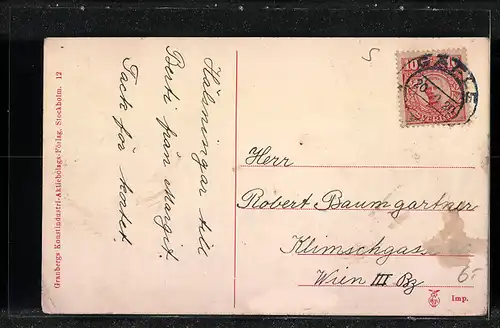 Hälsningar till
Berti från Margit.
Tack för kortet.
Granbergs Konstindustri-Aktiebolags-Förlag, Stockholm. 12
10
GEFLE
SVERIGE
Herr
Robert Baumgartner
Klimschga
Wien III Bz
6.-
Imp.